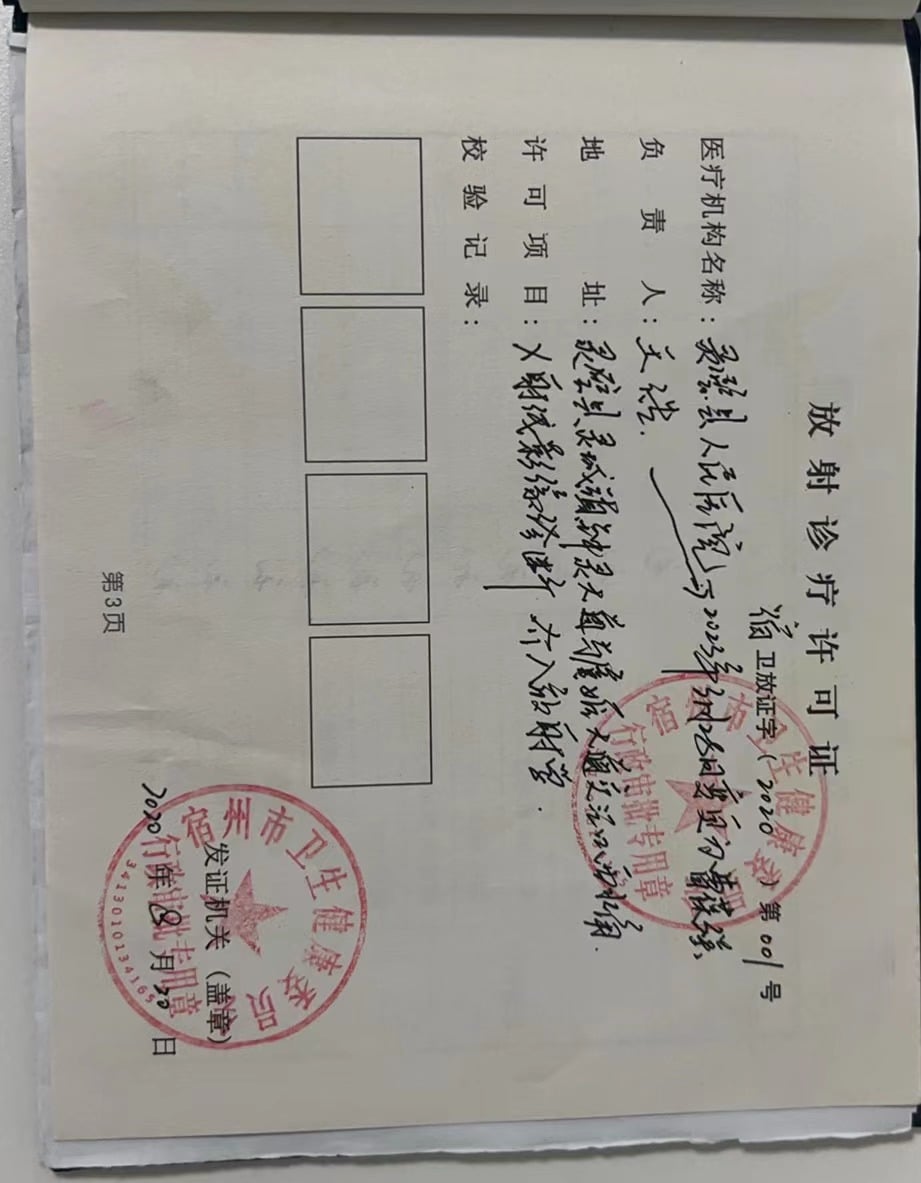 放射诊疗许可证
宿卫放证字（2020）第001号
医疗机构名称：灵璧县人民医院
于2023年3月2日变更为
负责人：王
地址：灵璧县灵城镇钟灵大道与凤山大道交汇处西北角.
许可项目：X射线影像诊断 介入放射学.
校验记录：
发证机关（盖章）
2020年 月30日
第3页
宿州市卫生健康委员会
行政审批专用章
宿州市卫生健康委员会
行政审批专用章
3413010134165